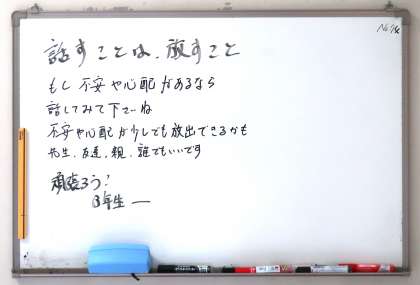 話すことは、放すこと
もし不安や心配があるなら
話してみて下さいね
不安や心配が少しでも放出できるかも
先生、友達、親、誰でもいいです
頑張ろう！
3年生ー